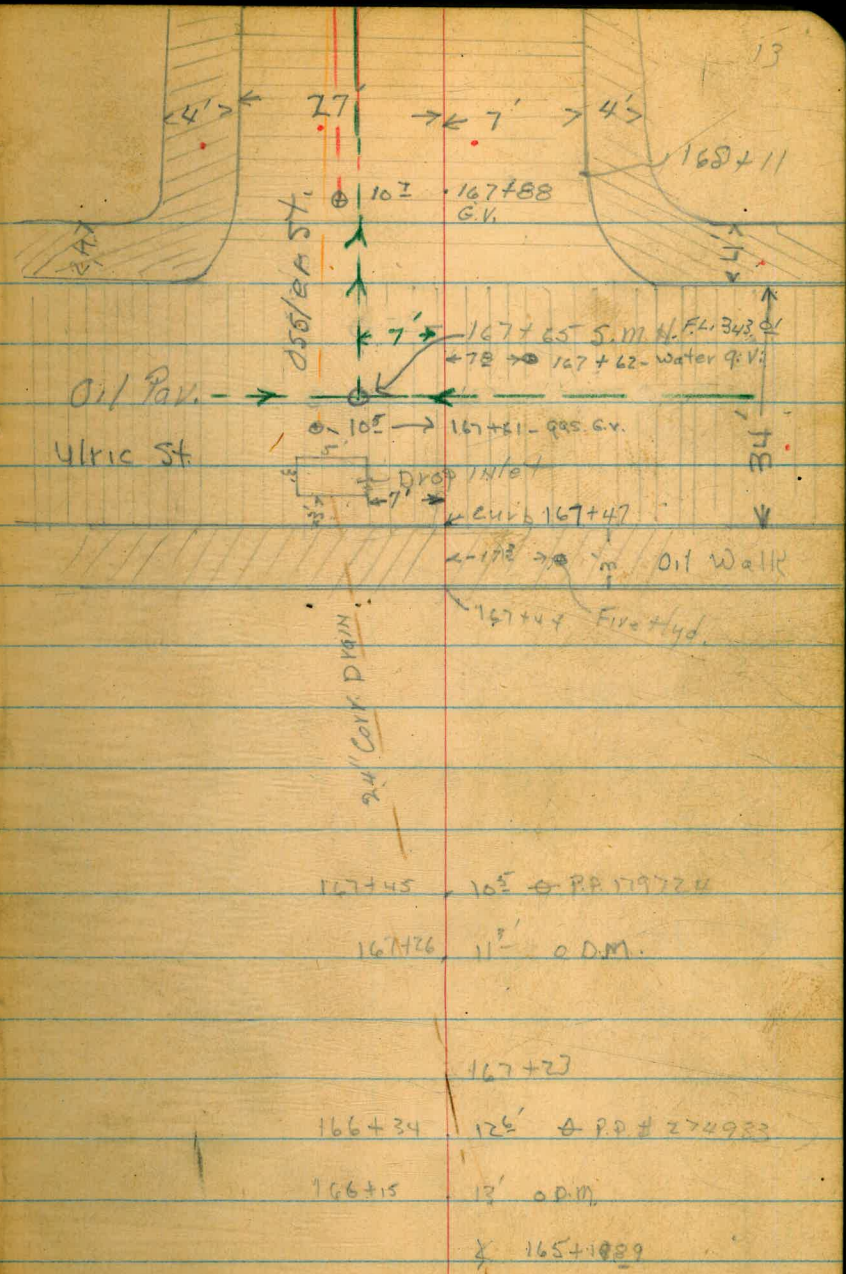 13
4' 27' 7' 4'
168+11
10 I 167+88
G.V.
4' 4'
Ossica St.
7' 167+65 S.M.H. F.L. 343.01
78 167+62 - Water G.V.
Oil Pav.
10 5 167+61 - gas G.V.
34'
Ulric St.
Drop Inlet
3' 7'
Curb 167+47
17 3 3' Oil Walk
167+44 Fire Hyd.
24" Corr. Drain
167+45 10 5 P.P. 179724
167+26 11 5' O D.M.
167+23
166+34 12 6' P.P. # 274983
166+15 13' O D.M.